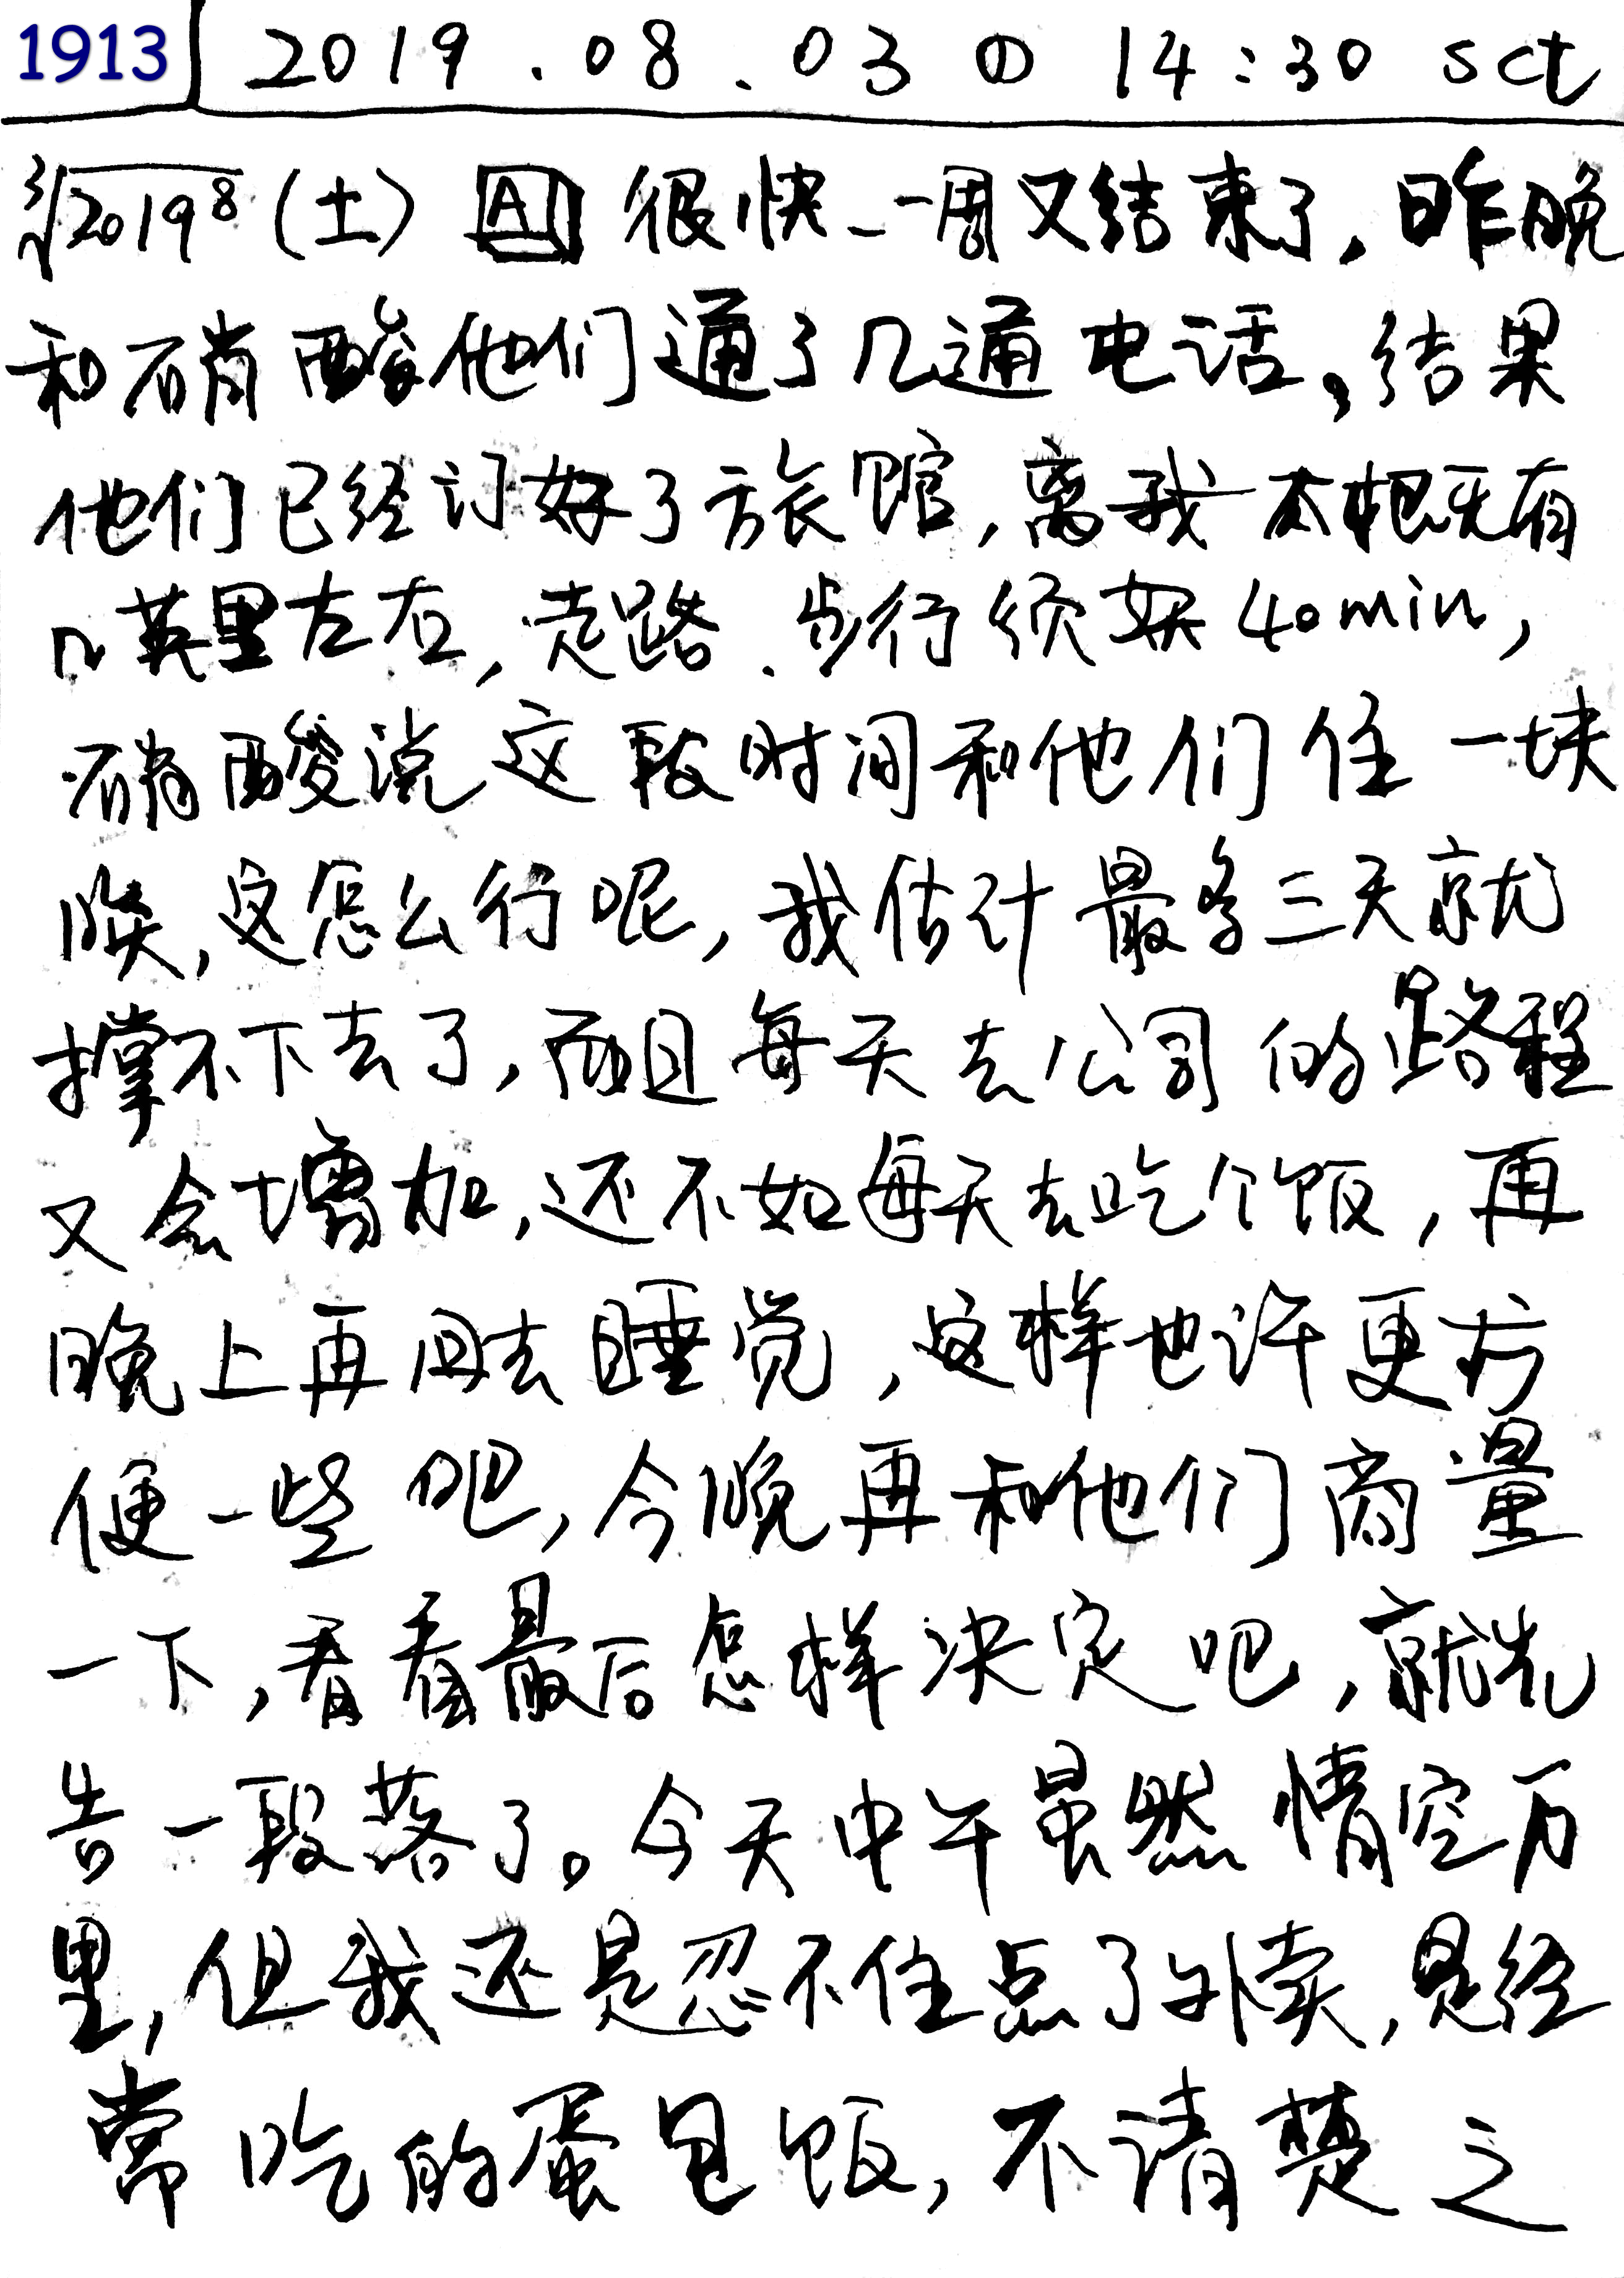 1913 2019.08.03 ① 14:30 sct
∛2019⁸ (土) A 很快一周又结束了,昨晚
和硝酸他们通了几通电话,结果
他们已经订好了旅馆,离我大概只有
几英里左右,走路、步行须要40min,
硝酸说这段时间和他们住一块
唉,这怎么行呢,我估计最多三天就
撑不下去了,而且每天去公司的路程
又会增加,还不如每天去吃个饭,再
晚上再回去睡觉,这样也许更方
便一些吧,今晚再和他们商量
一下,看看最后怎样决定吧,就先
告一段落了。今天中午虽然晴空万
里,但我还是忍不住点了外卖,是经
常吃的蛋包饭,不清楚之